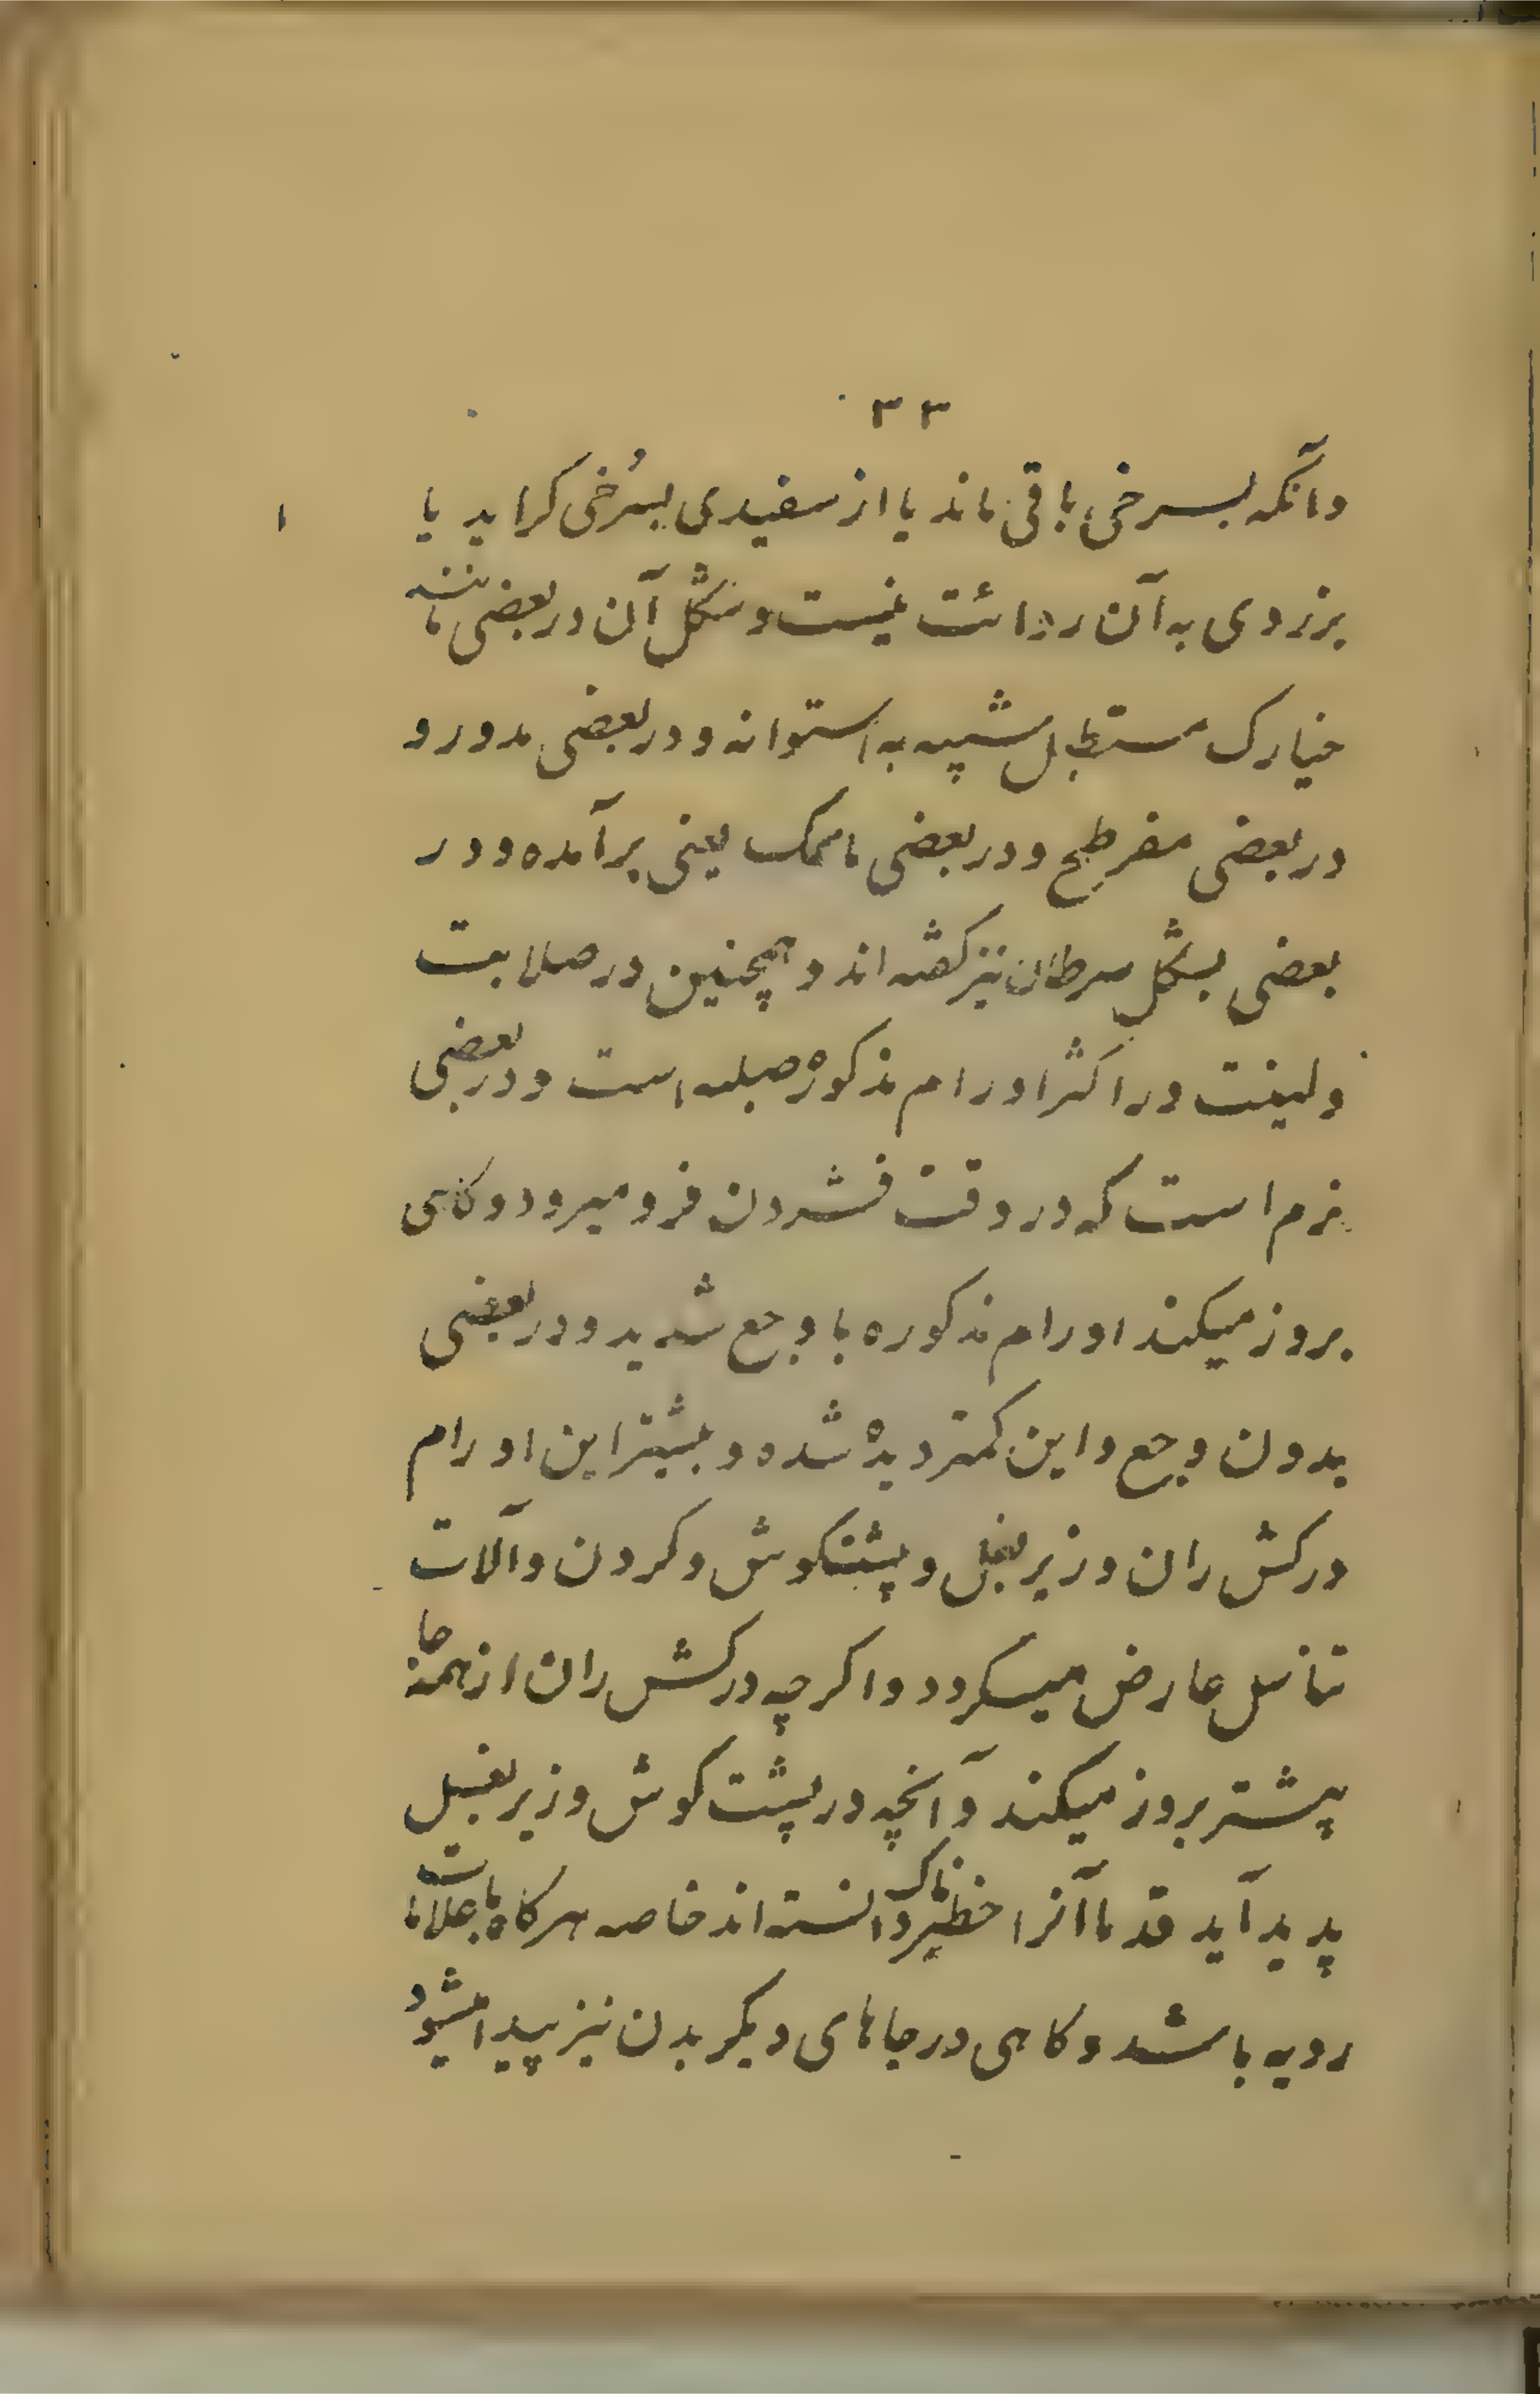 ۳۳
وآنکه بسرخی باقی ماند یا از سفیدی بسُرخی کراید یا
بزردی به آن ردائت نیست و شکل آن در بعضی مانند
خیارک مستطیل شبیه به استوانه و در بعضی مدور و
در بعضی مفرطح و در بعضی یعنی برآمده و در
بعضی بشکل سرطان نیز کفته اند و همچنین در صلابت
و لینت در اکثر اورام مذکوره صلبه است و در بعضی
نرم است که در وقت فشردن فرو میرود و کاهی
بروز میکند اورام مذکوره با وجع شدید و در بعضی
بدون وجع و این کمتر دیده شده و بیشتر این اورام
در کش ران و زیر بغل و پشت کوش و کردن و آلات
تناسل عارض میکردد و اکرچه در کش ران از همه جا
پیشتر بروز میکند و آنچه در پشت کوش و زیر بغل
پدید آید قدما آنرا خطرناک دانسته اند خاصه هرکاه با علامات
ردیه باشد و کاهی در جاهای دیکر بدن نیز پیدا میشود